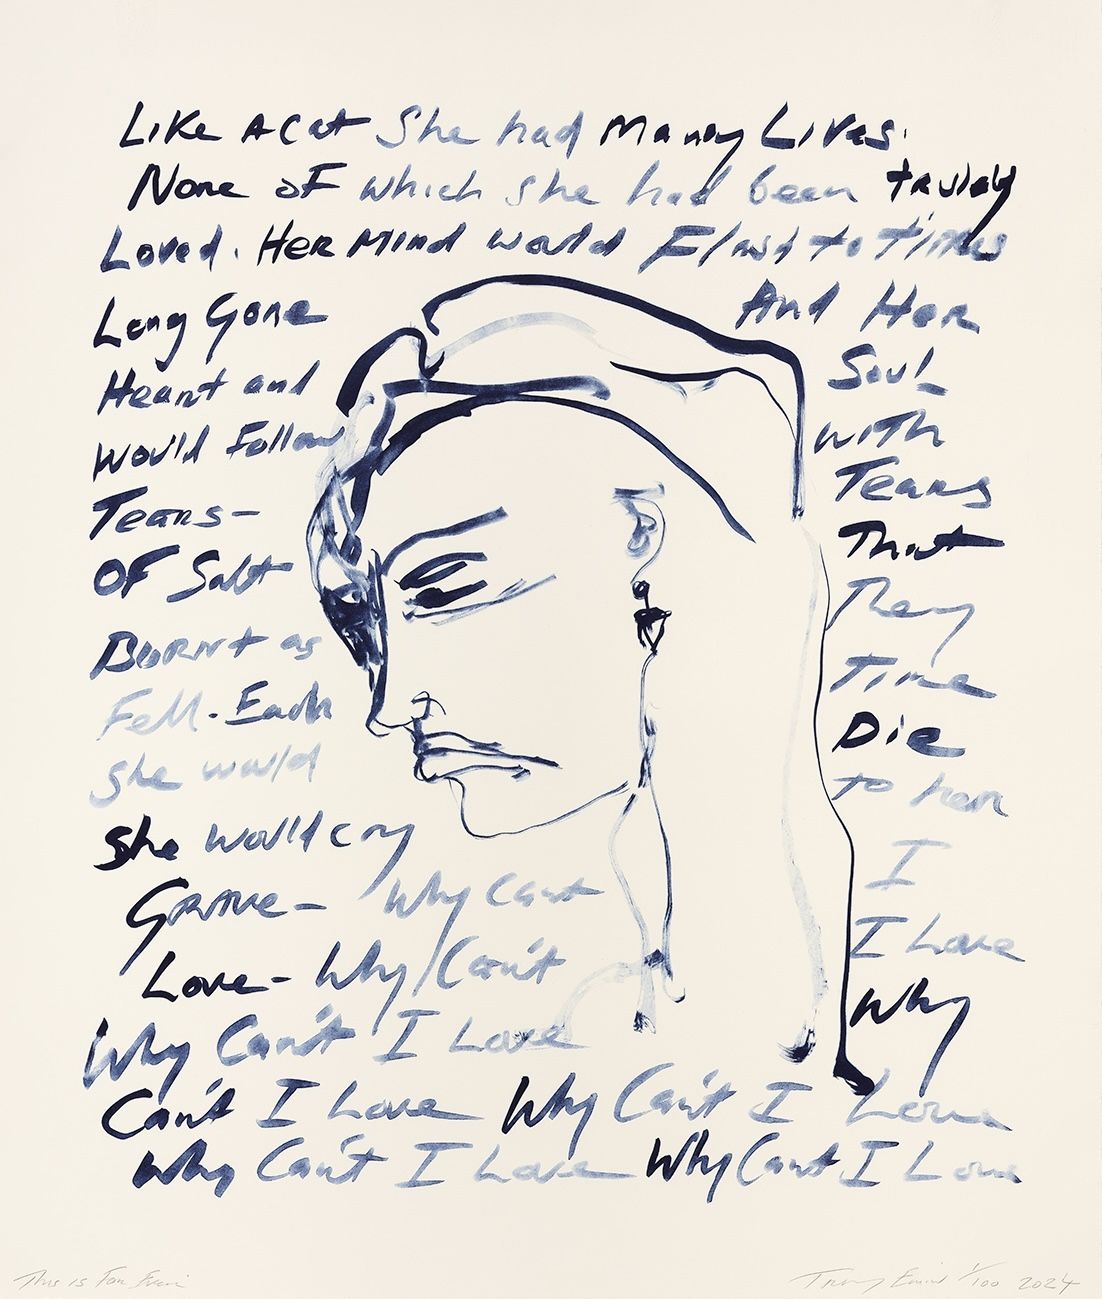 Like A Cat She had Many Lives.
None oF which she had been truley
Loved. Her Mind would Flash to Times
Long Gone And Her
Heart and Soul
Would Follow with
Tears – Tears
OF Salt That
Burnt as They
Fell. Each Time
She would Die
She would cry to her
Grave – Why Cant I
Love – Why Can't I Love
Why Can't I Love Why
Can't I Love Why Can't I Love
Why Can't I Love Why Cant I Love
This is For Tracey Emin 1/100 2024